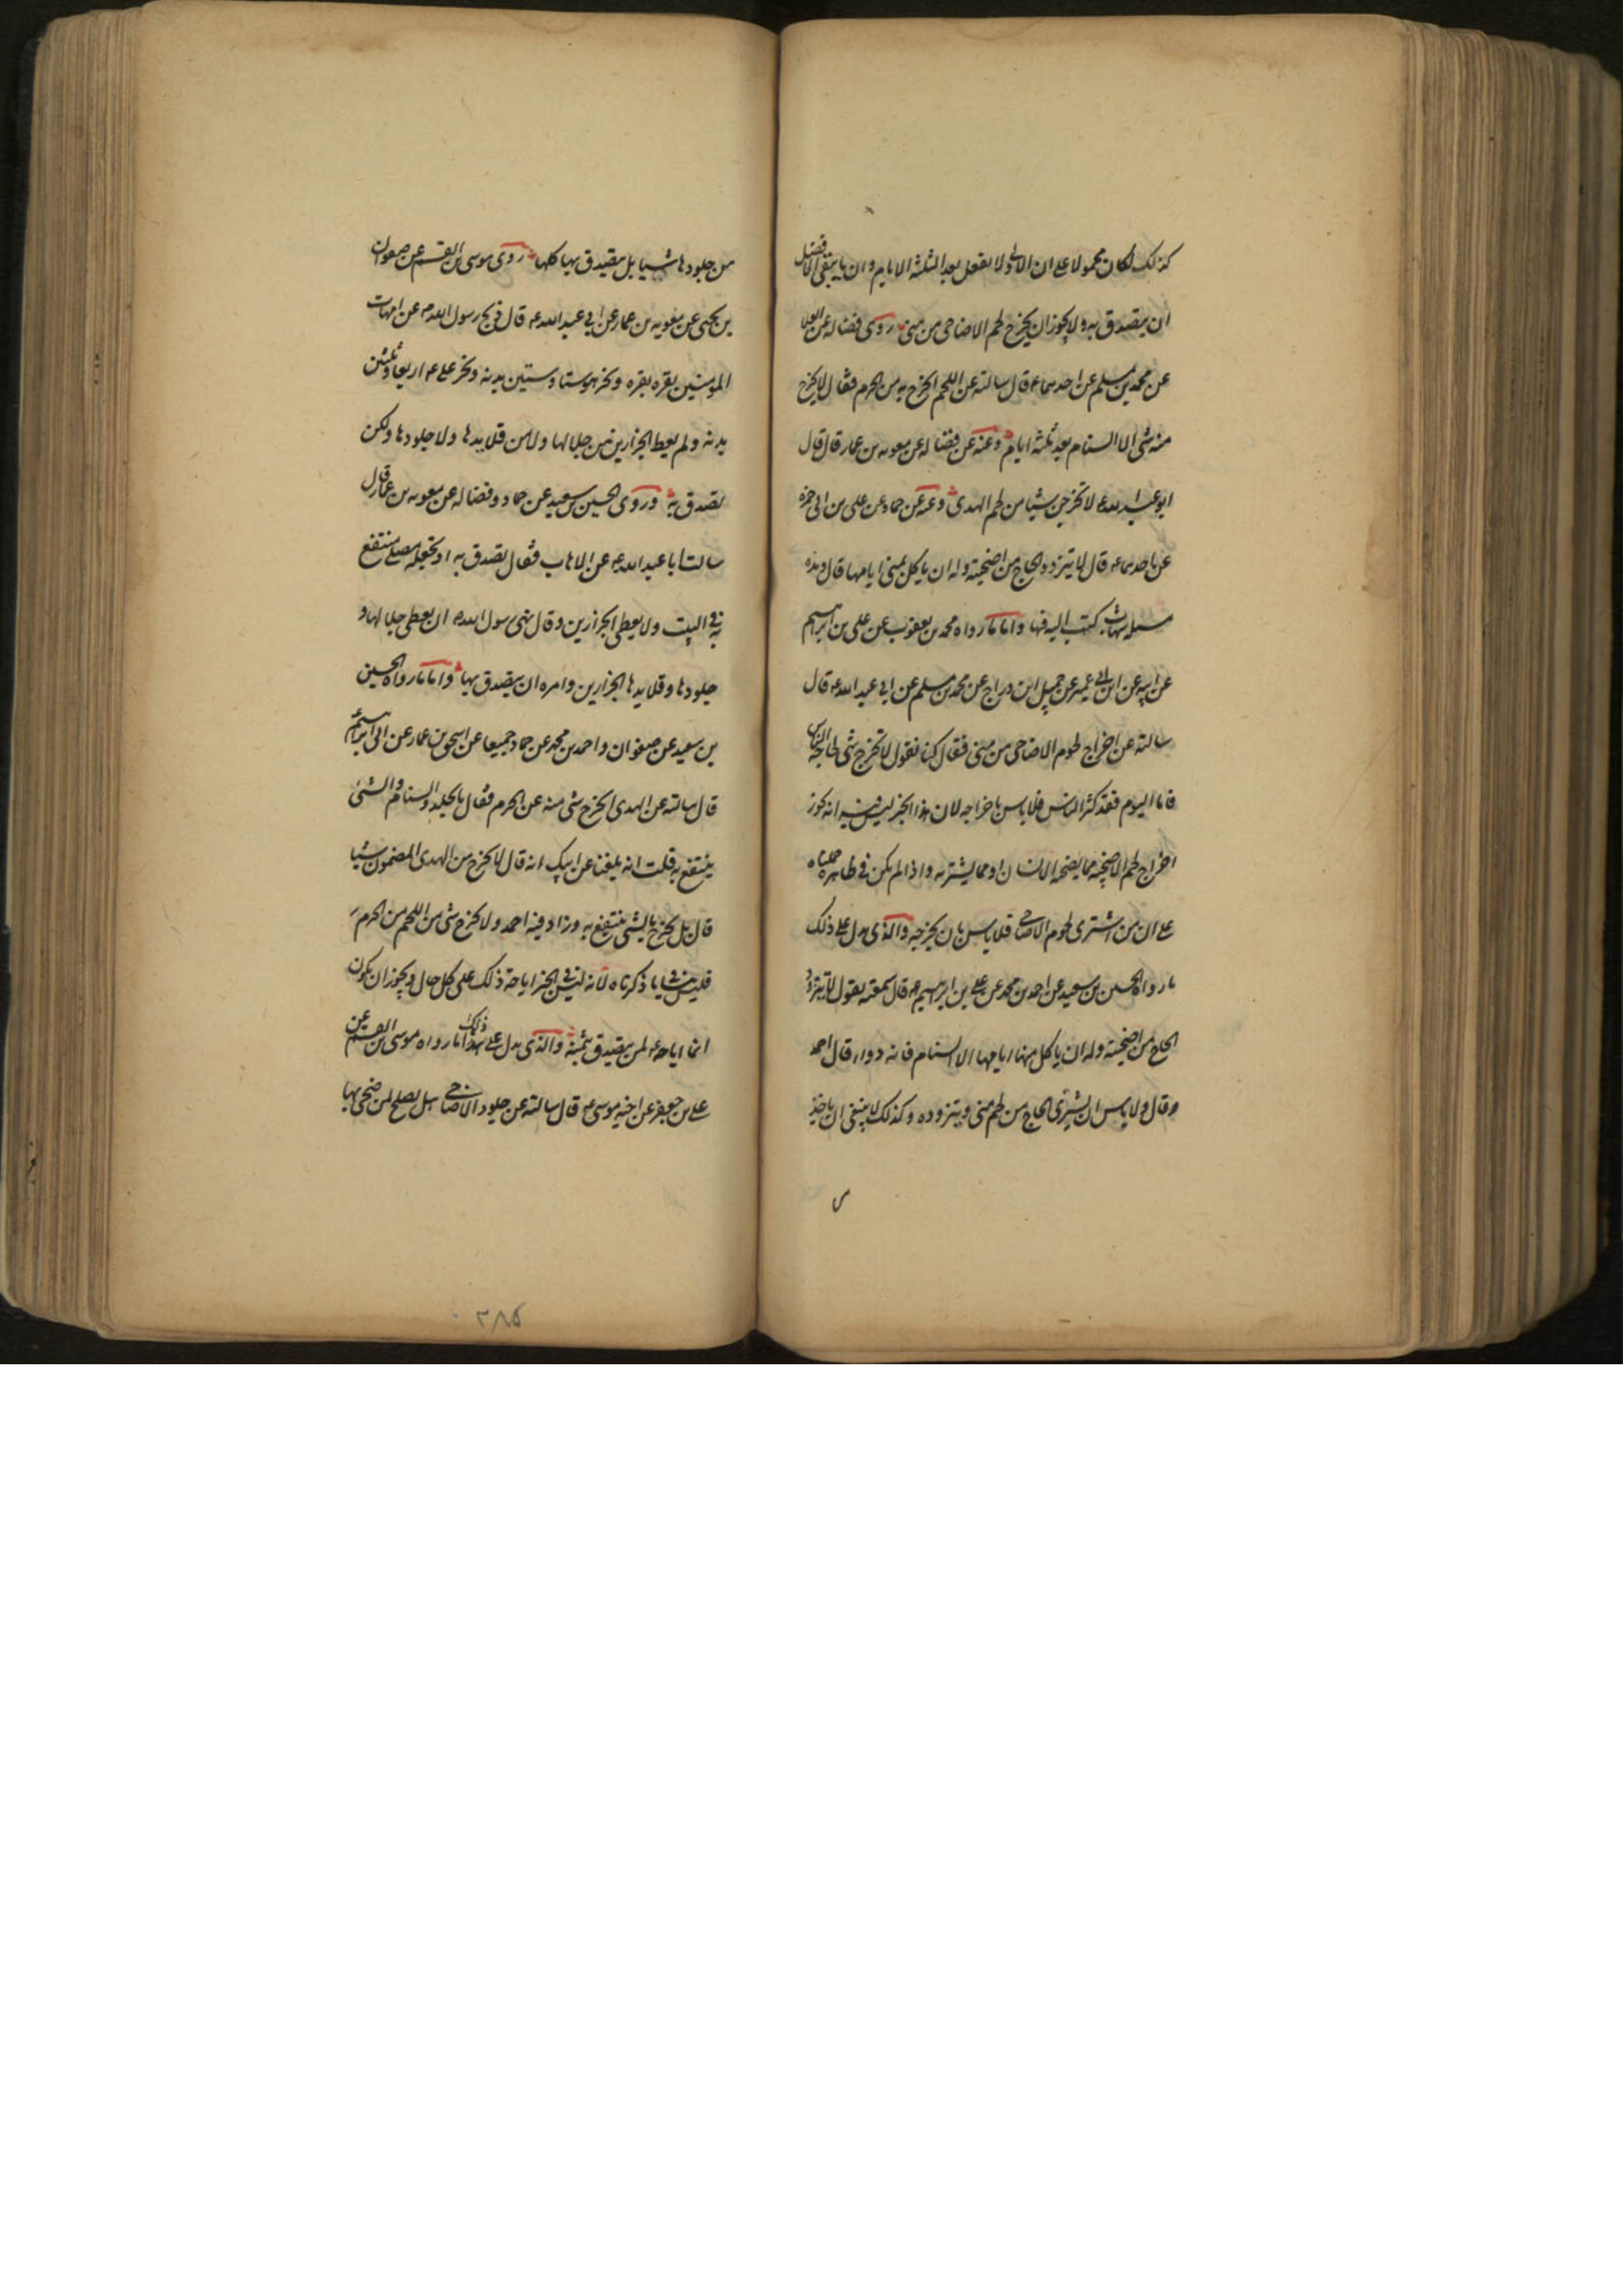 كذلك لكان محمولا على ان الاولى ولا يفعل بعد الثلثة الايام وان ما يبقى الافضل
ان يتصدق به ولا يجوز ان يخرج لحم الاضاحى من منى روى فضاله عن العلا
عن محمد بن مسلم عن احدهما ع قال سالته عن اللحم ايخرج به من الحرم فقال لا يخرج
منه شى الا السنام بعد ثلثة ايام وعنه عن فضاله عن معويه بن عمار قال قال
ابو عبد الله ع لا تخرجن شيئا من لحم الهدى وعنه عن حماد عن على بن ابى حمزه
عن احدهما ع قال لا يتزود الحاج من اضحيته وله ان ياكل بمنى ايامها قال وهذه
مسئله شهاب كتب اليه فيها واما ما رواه محمد بن يعقوب عن على بن ابراهيم
عن ابيه عن ابن ابى عمير عن جميل ابن دراج عن محمد بن مسلم عن ابى عبد الله ع قال
سالته عن اخراج لحوم الاضاحى من منى فقال كنا نقول لا تخرج شى لحاجة الناس
فاما اليوم فقد كثر الناس فلا باس باخراجه لان هذا الخبر ليس فيه انه يجوز
اخراج لحم الاضحيه مما يضحيه الانسان او مما يشتريه واذا لم يكن فى ظاهره حملناه
على ان من اشترى لحوم الاضاحى فلا باس بان يخرجه والذى يدل على ذلك
ما رواه الحسين بن سعيد عن احمد بن محمد عن على بن ابراهيم ع قال سمعته يقول لا يتزود
الحاج من اضحيته وله ان ياكل منها ايامها الا السنام فانه دواء قال احمد
وقال ولا باس ان يشترى الحاج من لحم منى ويتزوده وكذلك لا ينبغى ان ياخذ
من جلودها شيا بل يتصدق بها كلها روى موسى بن القسم عن صفوان
بن يحيى عن معويه بن عمار عن ابى عبد الله ع قال ذبح رسول الله ص عن امهات
المومنين بقره بقره ونحر هو ستا وستين بدنه ونحر على ع اربعا وثلثين
بدنه ولم يعط الجزارين من جلالها ولا من قلايدها ولا جلودها ولكن
تصدق به وروى الحسين بن سعيد عن حماد وفضاله عن معويه بن عمار قال
سالت ابا عبد الله ع عن الاهاب فقال تصدق به او تجعله مصلى ينتفع
به فى البيت ولا يعطى الجزارين وقال نهى رسول الله ص ان يعطى جلالها و
جلودها وقلايدها الجزارين وامره ان يتصدق بها واما ما رواه الحسين
بن سعيد عن صفوان واحمد بن محمد عن حماد جميعا عن اسحق بن عمار عن ابى ابراهيم
قال سالته عن الهدى ايخرج شى منه عن الحرم فقال بالجلد والسنام والشئ
ينتفع به قلت انه بلغنا عن ابيك انه قال لا يخرج من الهدى المضمون شيا
قال بل يخرج بالشى ينتفع به وزاد فيه احمد ولا يخرج شى من اللحم من الحرم
فليس ينافى ما ذكرناه لانه ليس فى الخبر اباحة ذلك على كل حال ويجوز ان يكون
انما اباحه لمن يتصدق بثمنه والذى يدل على ذلك ما رواه موسى بن القسم عن
على بن جعفر عن اخيه موسى ع قال سالته عن جلود الاضاحى هل يصلح لمن ضحى بها
٣٨٥